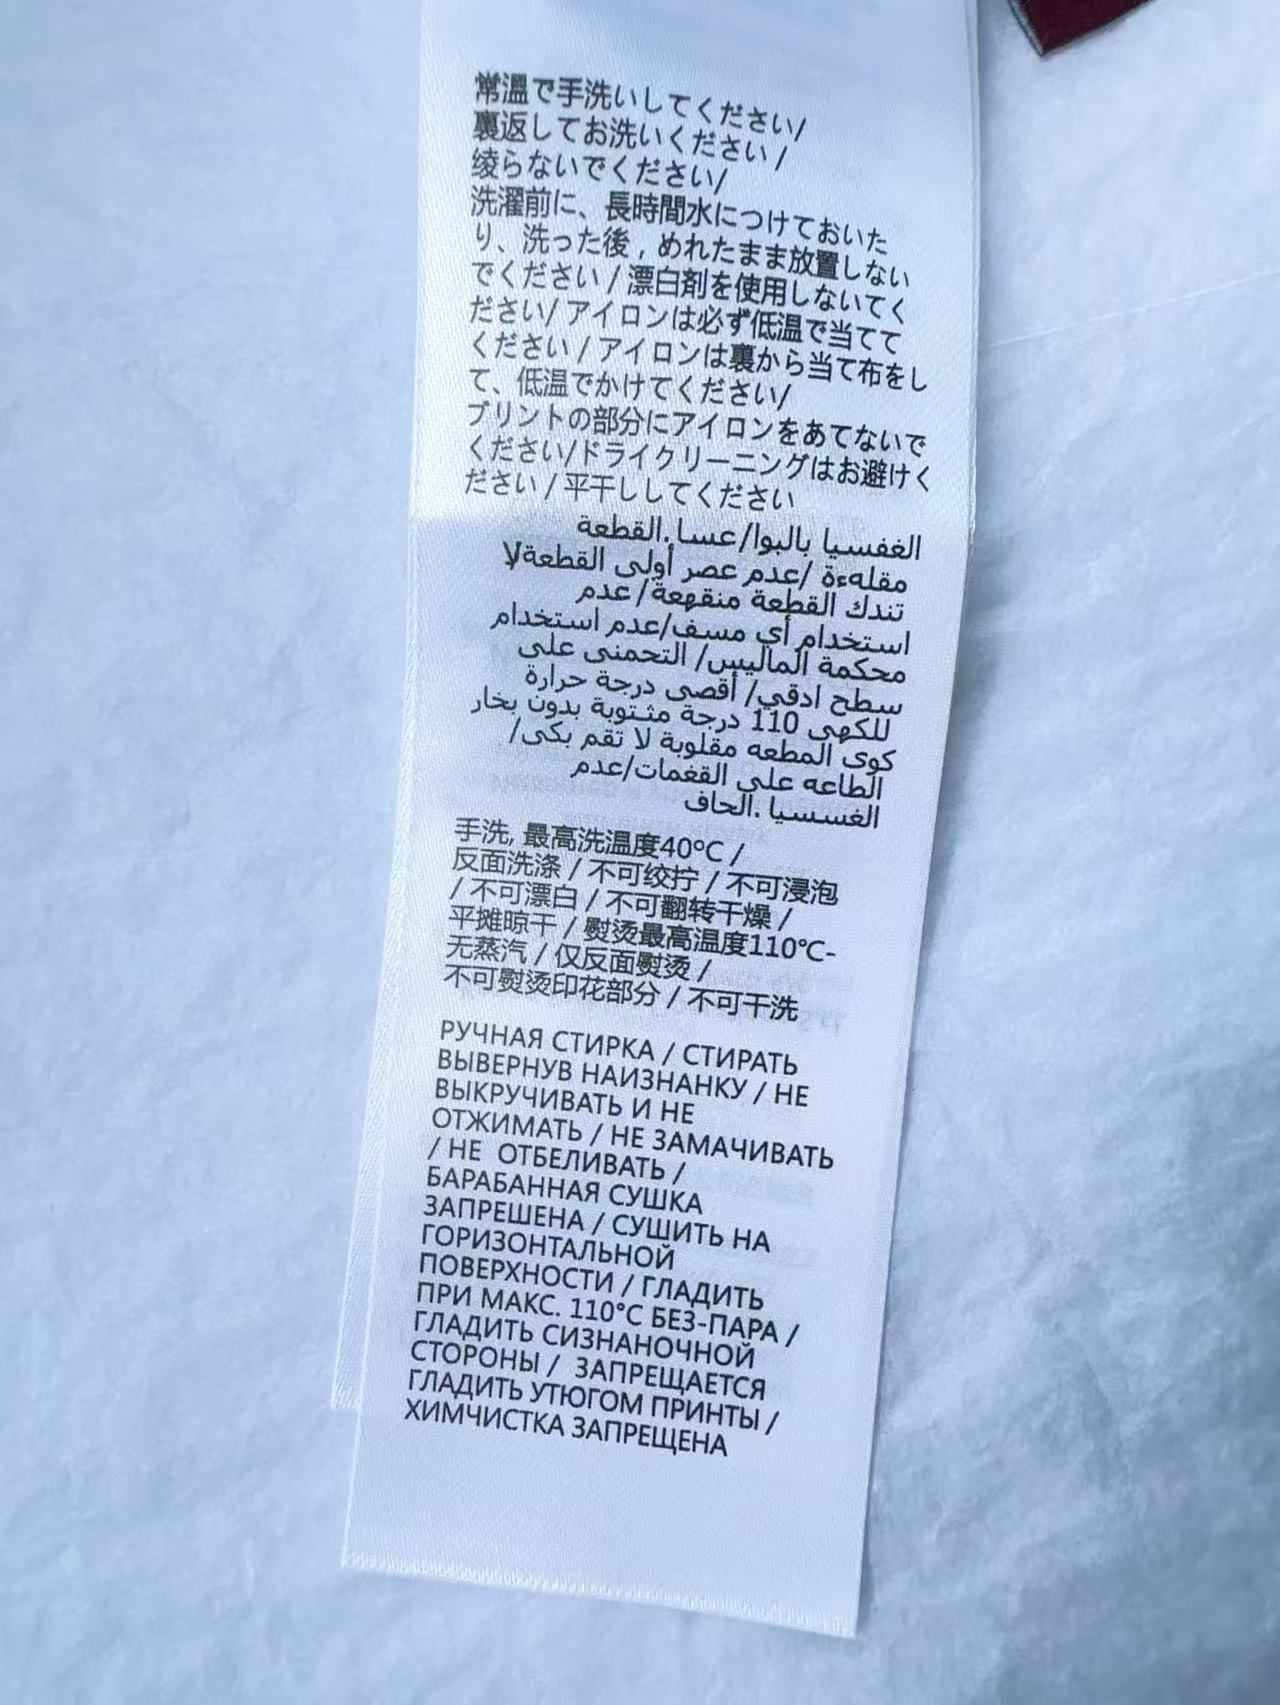 常温で手洗いしてください/
裏返してお洗いください /
绫らないでください/
洗濯前に、長時間水につけておいた
り、洗った後 , めれたまま放置しない
でください / 漂白剤を使用しないてく
ださい/ アイロンは必ず低温で当てて
ください / アイロンは裏から当て布をし
て、低温でかけてください/
プリントの部分にアイロンをあてないで
ください/ドライクリーニングはお避けく
ださい / 平干ししてください
الغفسيا بالبوا/عسا.القطعة
مقلهءة /عدم عصر أولى القطعةلا
تندك القطعة منقهعة/عدم
استخدام أي مسف/عدم استخدام
محكمة الماليس/ التحمنى على
سطح ادقي/ أقصى درجة حرارة
للكهى 110 درجة مئتوبة بدون بخار
كوى المطعه مقلوبة لا تقم بكى/
الطاعه على القغمات/عدم
الغسسيا .الحاف
手洗, 最高洗温度40°C /
反面洗涤 / 不可绞拧 / 不可浸泡
/ 不可漂白 / 不可翻转干燥 /
平摊晾干 / 熨烫最高温度110°C-
无蒸汽 / 仅反面熨烫 /
不可熨烫印花部分 / 不可干洗
РУЧНАЯ СТИРКА / СТИРАТЬ
ВЫВЕРНУВ НАИЗНАНКУ / НЕ
ВЫКРУЧИВАТЬ И НЕ
ОТЖИМАТЬ / НЕ ЗАМАЧИВАТЬ
/ НЕ ОТБЕЛИВАТЬ /
БАРАБАННАЯ СУШКА
ЗАПРЕШЕНА / СУШИТЬ НА
ГОРИЗОНТАЛЬНОЙ
ПОВЕРХНОСТИ / ГЛАДИТЬ
ПРИ МАКС. 110°C БЕЗ-ПАРА /
ГЛАДИТЬ СИЗНАНОЧНОЙ
СТОРОНЫ / ЗАПРЕЩАЕТСЯ
ГЛАДИТЬ УТЮГОМ ПРИНТЫ /
ХИМЧИСТКА ЗАПРЕЩЕНА